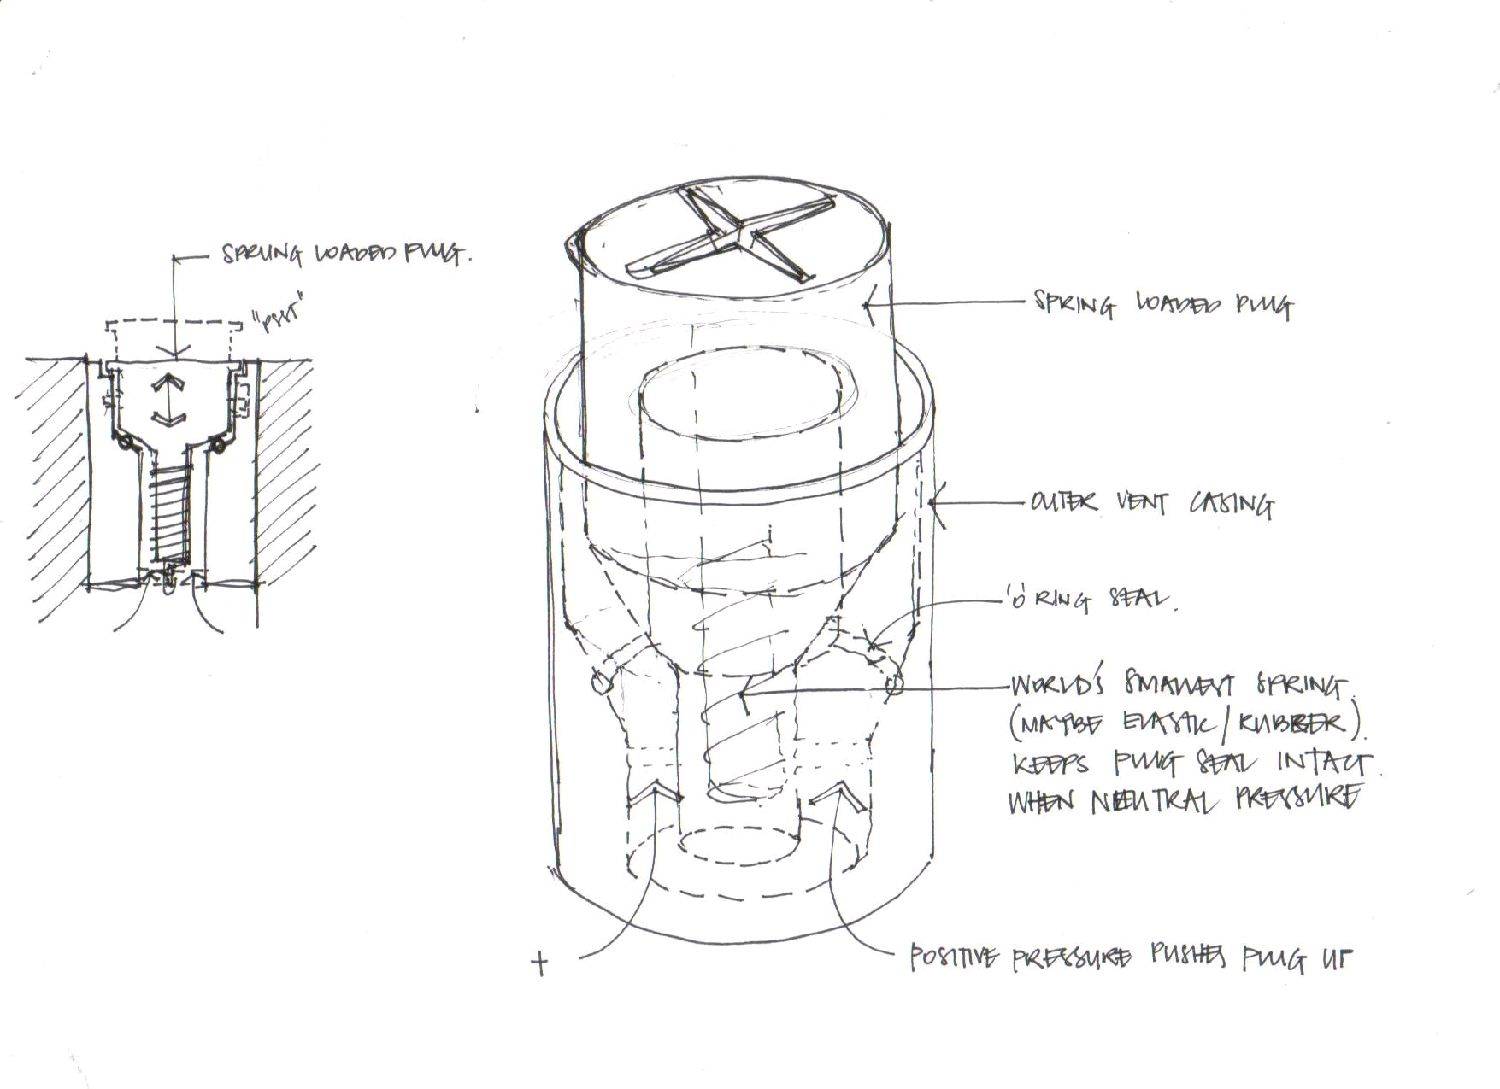 SPRUNG LOADED PLUG.
"PSST"
SPRING LOADED PLUG
OUTER VENT CASING
'O' RING SEAL.
WORLD'S SMALLEST SPRING.
(MAYBE ELASTIC/RUBBER).
KEEPS PLUG SEAL INTACT.
WHEN NEUTRAL PRESSURE
+
POSITIVE PRESSURE PUSHES PLUG UP